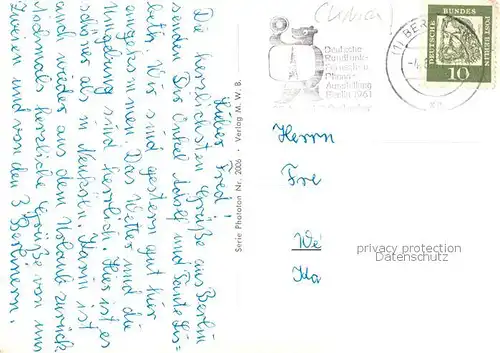 Lieber Fred!
Die herzlichsten Grüße aus Berlin
senden Dir Onkel Adolf und Tante Lis=
beth. Wir sind gestern gut hier
angekommen. Das Wetter und die
Umgebung sind herrlich. Hier ist es
schöner als in Neukölln. Karin ist
auch wieder aus dem Urlaub zurück.
Nochmals herzliche Grüße von uns
Zweien und von den 3 Berlinern.
Serie Phataton Nr. 2006 · Verlag M. W. B.
Deutsche
Rundfunk-
Fernseh- u.
Phono-
Ausstellung
Berlin 1961
(1) BERLIN
DEUTSCHE BUNDESPOST BERLIN
10
Herrn
Fre
We
Ka
privacy protection
Datenschutz